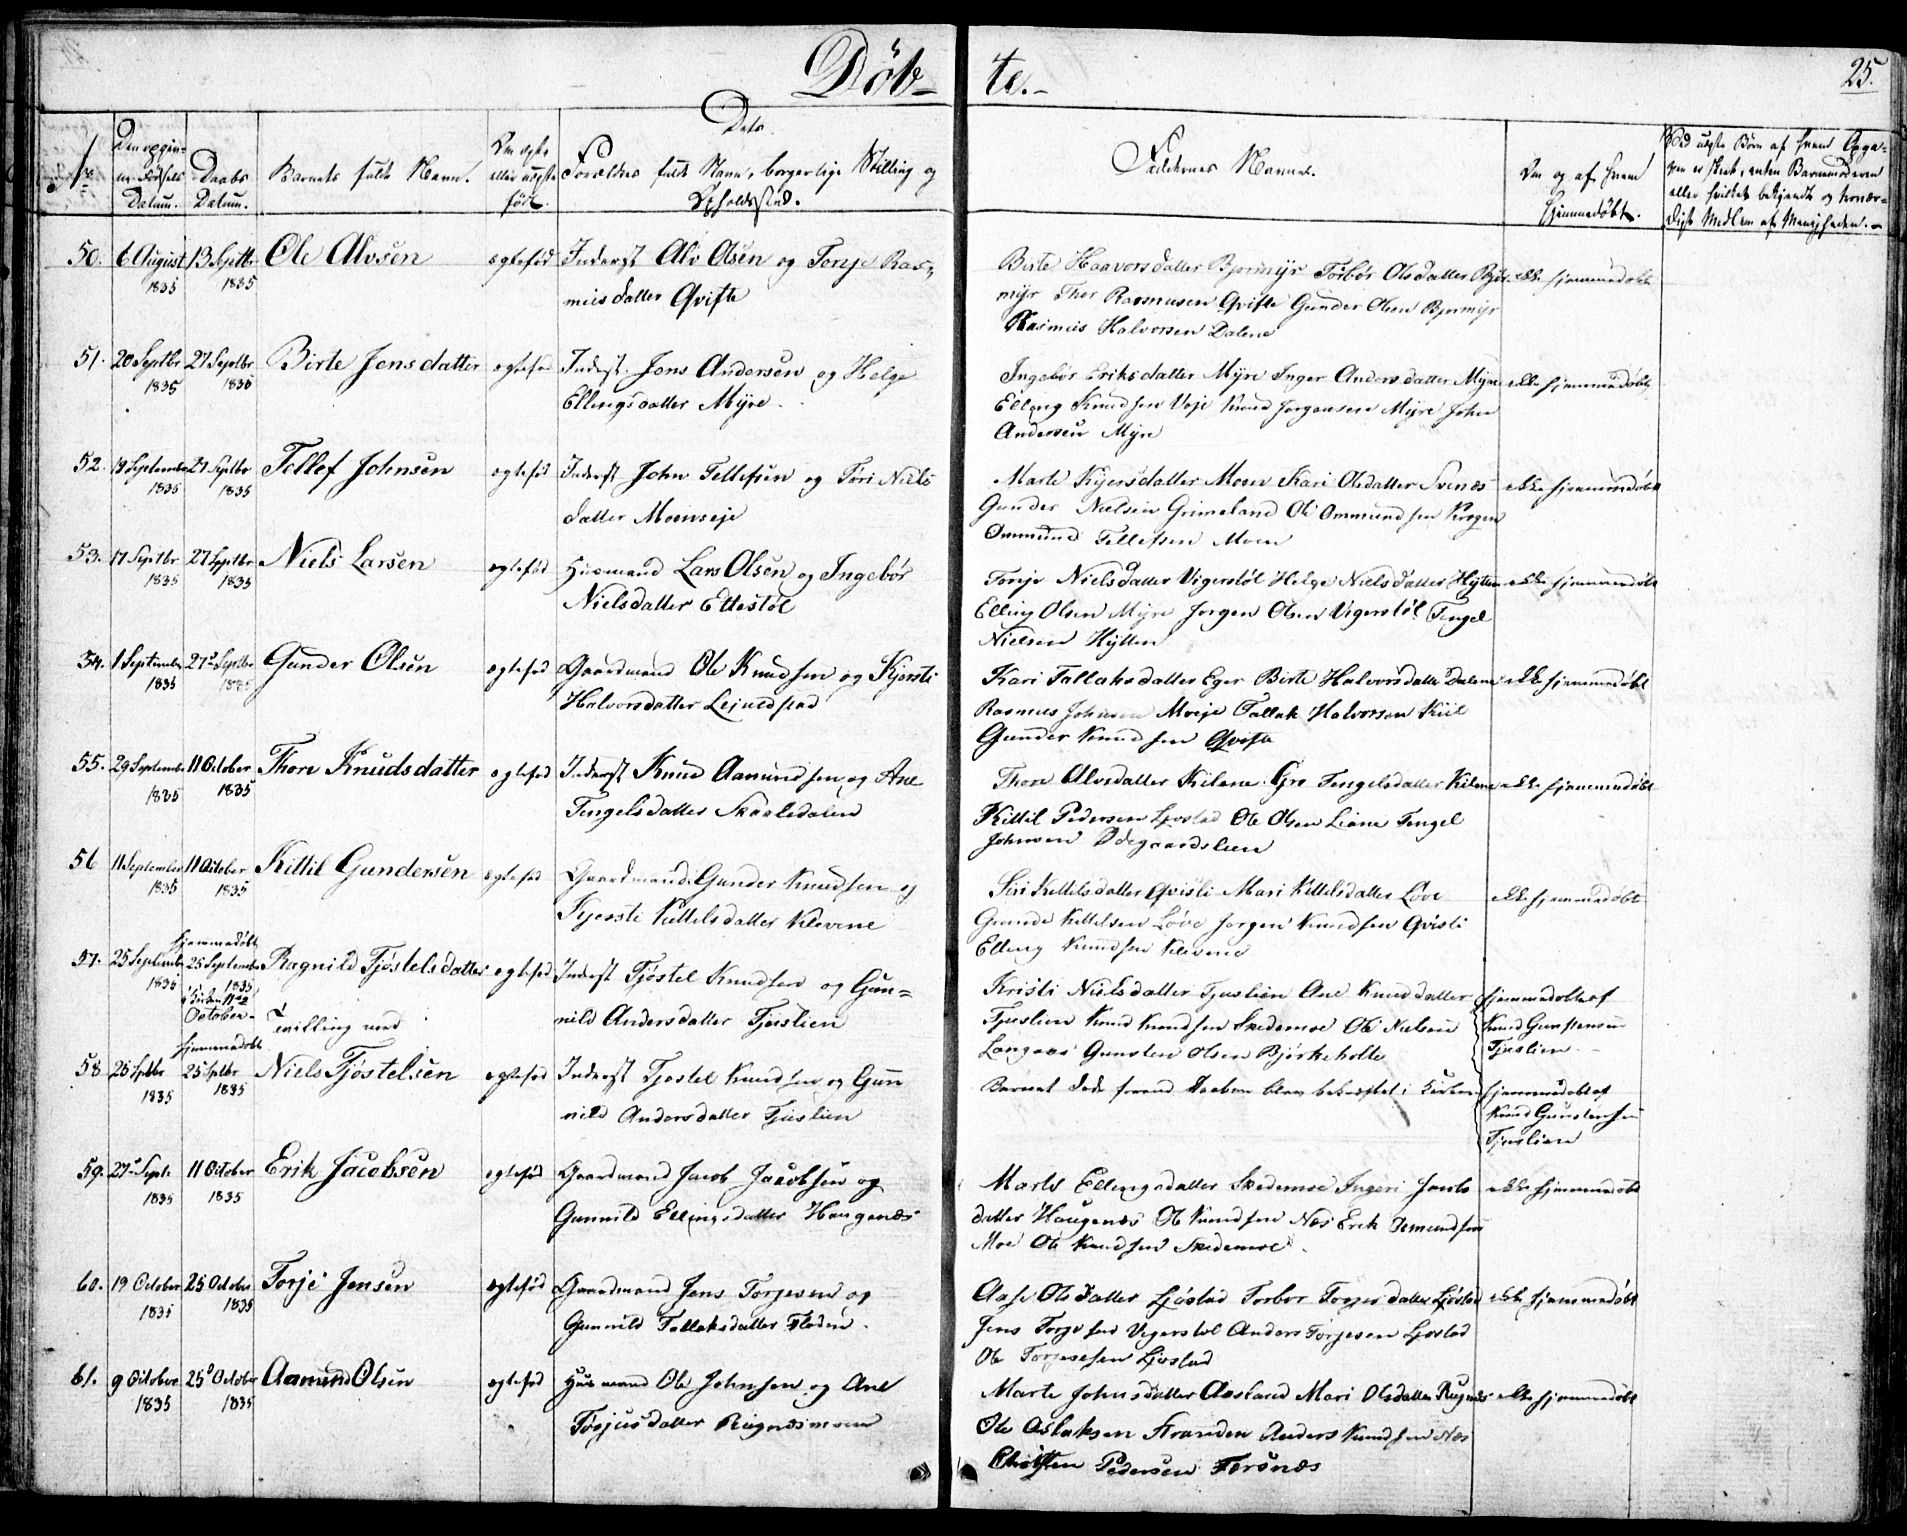 Döbte.-
25.
Dets
No
Den opgivne Fødsels Datum.
Daabs Datum.
Barnets fulde Navn.
Om ægte eller uægte født.
Forældres fulde Navn, borgerlige Stilling og Opholdssted.
Faddernes Navne.
Om og af hvem hjemmedøbt.
Ved uægte Børn af hvem Opgaven er skeet, enten Barnemoderen eller hvilket bekjendt og troværdigt Medlem af Menigheden.-
50. 6 August 13 Septbr Ole Alvsen ægtefød Inderst Alv Olsen og Torje Ras-
1835 1835 musdatter Qviste
Birte Haavorsdatter Bjormyr Torbør Olsdatter Bjor- ikke hjemmedøbt
myr Ther Rasmusen Qviste Gunder Olsen Bjormyr
Rasmus Halvorsen Dalene
51. 20 Septbr 27 Septbr Birte Jensdatter ægtefød Inderst Jens Andersen og Helge
1835 1835 Ellingsdatter Myre.
Ingebør Eriksdatter Myre Inger Andersdatter Myre ikke hjemmedøbt
Elling Knudsen Voje Knud Jorgensen Myre John
Andersen Myre
52. 19 September 27 Septbr Tellef Johnsen ægtefød Inderst John Tellefsen og Tori Niels
1835 1835 datter Moenseje
Marte Kjersdatter Moen Kari Olsdatter Svenes ikke hjemmedøbt
Gunder Nielsen Grimeland Ole Ommundsen Krogen
Ommund Tellefsen Moen
53. 17 Septbr 27 Septbr Niels Larsen ægtefød Huusmand Lars Olsen og Ingebør
1835 1835 Nielsdatter Ettestøl
Torje Nielsdatter Vigerstøl Helge Nielsdatter Hyten ikke hjemmedøbt
Elling Olsen Myre Jorgen Olsen Vigerstøl Tengel
Nielsen Hytten
54. 1 September 27 Septbr Gunder Olsen ægtefød Gaardmand Ole Knudsen og Kjersti
1835 1835 Halvorsdatter
Kari Tallaksdatter Eger Birte Halvorsdatter Dalene ikke hjemmedøbt
Rasmus Johnsen Moeje Tallak Halvorsen Kiil
Gunder Knudsen Qviste
55. 29 September 11 October Thore Knudsdatter ægtefød Inderst Knud Aamundsen og Ane
1835 1835 Tengelsdatter Skaaledalen
Thore Alvsdatter Kilene Gro Tengelsdatter Kilene ikke hjemmedøbt
Kittil Pedersen Ljøstad Ole Olsen Liane Tengel
Johnsen Ødegaardslien
56 11 September 11 October Kittil Gundersen ægtefød Gaardmand Gunder Knudsen og
1835 1835 Kjersti Kittelsdatter Klevene
Siri Kittelsdatter Qvisti Mari Kittelsdatter Løve ikke hjemmedøbt
Gunde Kittelsen Løve Jorgen Knudsen Qvisti
Elling Knudsen Klevene
hjemmedøbt
57. 25 September 25 September Ragnild Tjøstelsdatter ægtefød Inderst Tjøstel Knudsen og Gun-
1835 1835 nild Andersdatter Tjuslien
i Kirken 11te
October-
Tvilling med
Kristi Nielsdatter Tjuslien Ane Knudsdatter hjemmedøbt af
Tjuslien Knud Knudsen Skedsmoe Ole Nielsen Knud Gunstensen
Langaas Gunsten Olsen Bjørkeholte Tjuslien.-
hjemmedøbt
58 25 Sptbr 25 Sptbr Niels Tjøstelsen ægtefød Inderst Tjøstel Knudsen og Gun
1835 1835 nild Andersdatter Tjuslien
Barnet døde forend Daaben blev bekræftet i Kirken hjemmedøbt af
Knud Gunstensen
Tjuslien
59. 27 Septr 11 October Erik Jacobsen ægtefød Gaardmand Jacob Jacobsen og
1835 1835 Gunnild Ellingsdatter Haugenæs
Marte Ellingsdatter Skedsmoe Ingeri Jacobs ikke hjemmedøbt
datter Haugenæs Ole Knudsen Næs Erik Omundsen
Moe Ole Knudsen Skedsmoe.
60. 19 October 25 October Torje Jensen ægtefød Gaardmand Jens Torjesen og
1835 1835 Gunnild Tallaksdatter Floden.
Aase Olsdatter Ljøstad Torbor Torjesdatter Ljøstad ikke hjemmedøbt
Jens Torjesen Vigerstøl Anders Torjesen Ljøstad
Ole Torjesesen Ljøstad
61. 9 October 25 October Aamund Olsen ægtefød Huusmand Ole Johnsen og Ane
1835 1835 Torjusdatter Rugnæsmoen
Marte Johnsdatter Aasland Mari Olsdatter Rugnæs ikke hjemmedøbt
Ole Aslaksen Stranden Anders Knudsen Næs
Christen Pedersen Forsnæs